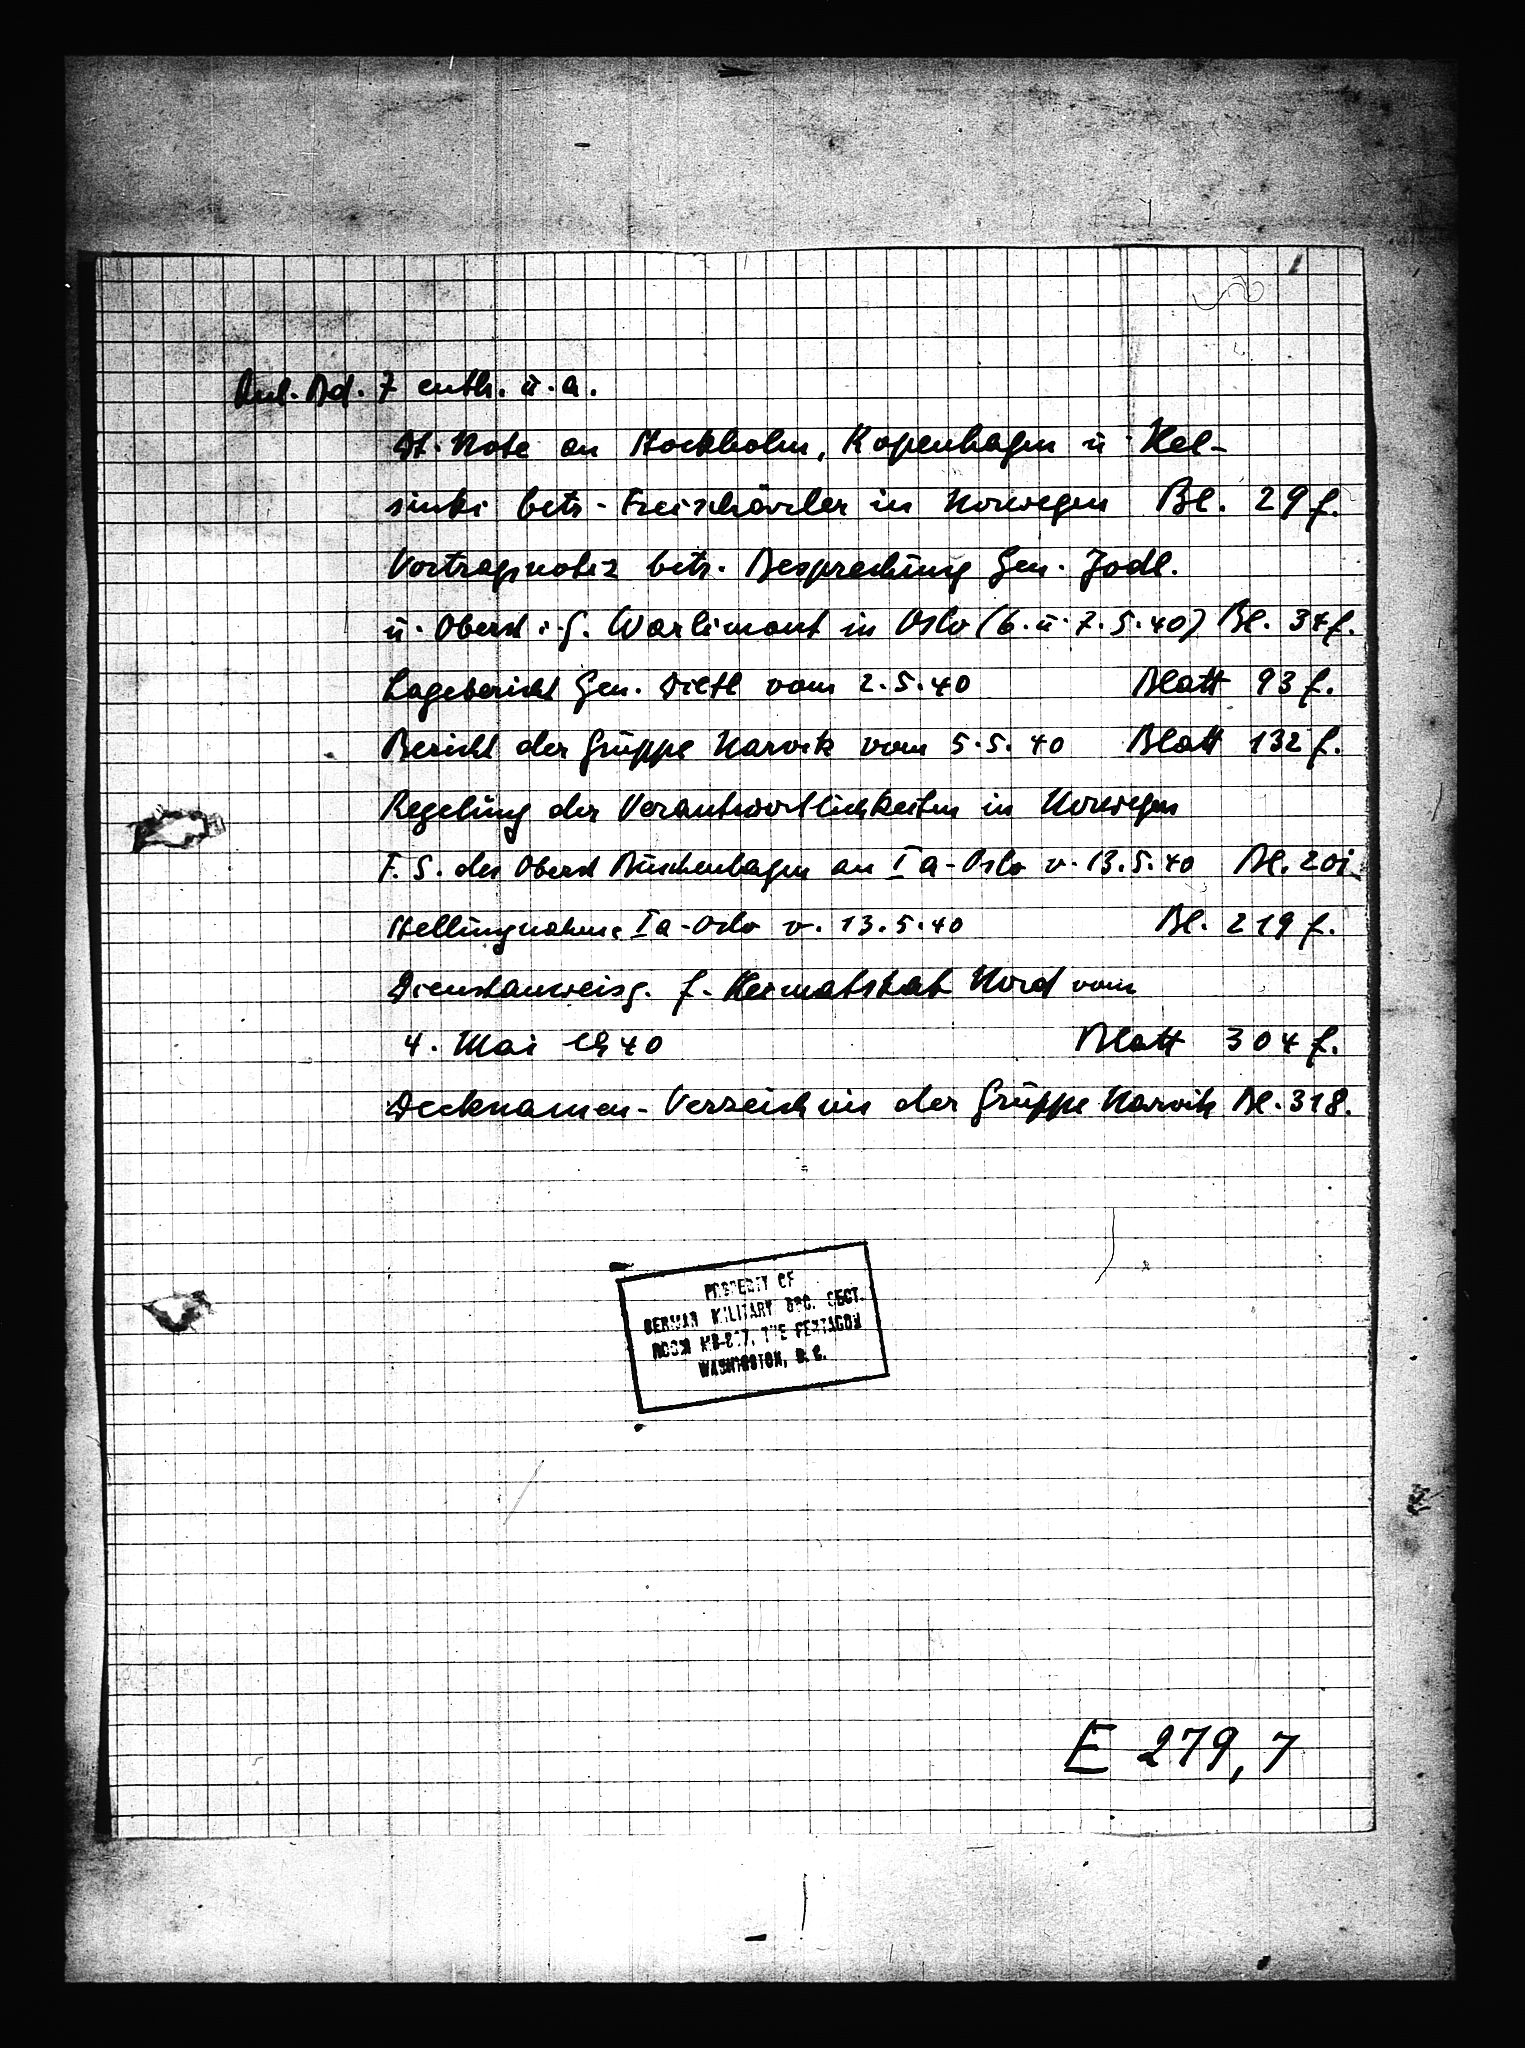 1
Anl. Bd. 7 enth. u. a.
Dt. Note an Stockholm, Kopenhagen u. Hel-
sinki betr. Freischärler in Norwegen Bl. 29 f.
Vortragsnotiz betr. Besprechung Gen. Jodl.
u. Oberst i. G. Warlimont in Oslo (6. u. 7. 5. 40) Bl. 34 f.
Lagebericht Gen. Dietl vom 2. 5. 40 Blatt 93 f.
Bericht der Gruppe Narvik vom 5. 5. 40 Blatt 132 f.
Regelung der Verantwortlichkeiten in Norwegen
F. S. des Oberst Buschenhagen an Ia-Oslo v. 13. 5. 40 Bl.
Stellungnahme Ia-Oslo v. 13. 5. 40 Bl. 219 f.
Dienstanweisg. f. Heimatstab Nord vom
4. Mai 1940 Blatt 304 f.
Decknamen-Verzeichnis der Gruppe Narvik Bl. 318.
PROPERTY OF
GERMAN MILITARY DOC. SECT.
ROOM THE PENTAGON
WASHINGTON, D. C.
E 279, 7